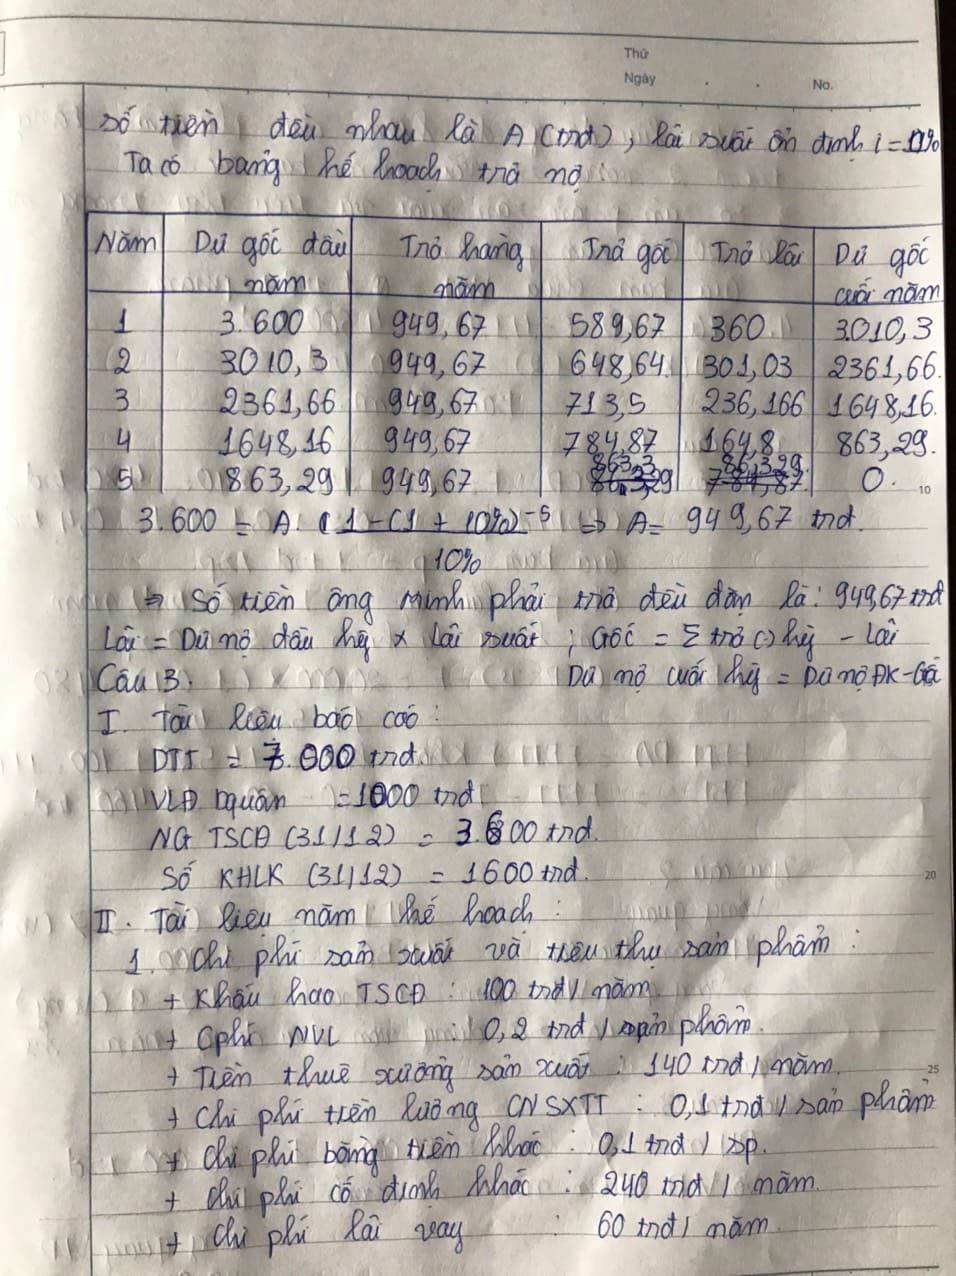 Thứ
Ngày . . No.
số tiền đều nhau là A (trđ), lãi suất ổn định i = 10%
Ta có bảng kế hoạch trả nợ:
Năm | Dư gốc đầu năm | Trả hàng năm | Trả gốc | Trả lãi | Dư gốc cuối năm
1 | 3.600 | 949,67 | 589,67 | 360 | 3.010,3
2 | 3010,3 | 949,67 | 648,64 | 301,03 | 2361,66
3 | 2361,66 | 949,67 | 713,5 | 236,166 | 1648,16
4 | 1648,16 | 949,67 | 784,87 | 164,8 | 863,29
5 | 863,29 | 949,67 | 863,3 | 86,329 | 0
10
3.600 = A. (1-(1 + 10%)^-5 / 10% => A = 949,67 trđ.
=> Số tiền ông Minh phải trả đều đặn là: 949,67 trđ
Lãi = Dư nợ đầu kỳ x Lãi suất ; Gốc = Σ trả () kỳ - Lãi
Câu 3: Dư nợ cuối kỳ = Dư nợ ĐK - Gốc
I. Tài liệu báo cáo:
DTT = 7.000 trđ.
VLĐ bquân = 1000 trđ
NG TSCĐ (31/12) = 3.600 trđ.
Số KHLK (31/12) = 1600 trđ.
20
II. Tài liệu năm kế hoạch:
1. Chi phí sản xuất và tiêu thụ sản phẩm:
+ Khấu hao TSCĐ : 100 trđ/năm
+ Cphí NVL : 0,2 trđ/sản phẩm.
+ Tiền thuê xưởng sản xuất : 140 trđ/năm.
25
+ Chi phí tiền lương CNSXTT : 0,1 trđ/sản phẩm
+ Chi phí bằng tiền khác : 0,1 trđ/sp.
+ Chi phí cố định khác : 240 trđ/năm
+ Chi phí lãi vay : 60 trđ/năm